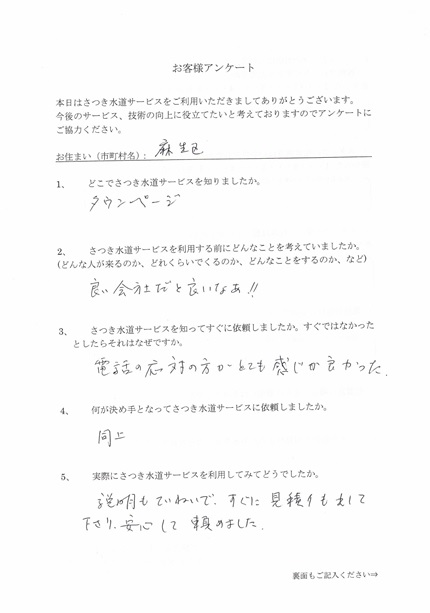 お客様アンケート
本日はさつき水道サービスをご利用いただきましてありがとうございます。
今後のサービス、技術の向上に役立てたいと考えておりますのでアンケートに
ご協力ください。
お住まい（市町村名）: 麻生区
1、 どこでさつき水道サービスを知りましたか。
タウンページ
2、 さつき水道サービスを利用する前にどんなことを考えていましたか。
(どんな人が来るのか、どれくらいでくるのか、どんなことをするのか、など)
良い会社だと良いなぁ!!
3、 さつき水道サービスを知ってすぐに依頼しましたか。すぐではなかった
としたらそれはなぜですか。
電話の応対の方がとても感じが良かった.
4、 何が決め手となってさつき水道サービスに依頼しましたか。
同上
5、 実際にさつき水道サービスを利用してみてどうでしたか。
説明もていねいで、すぐに見積りも出して
下さり、安心して頼めました.
裏面もご記入ください⇒